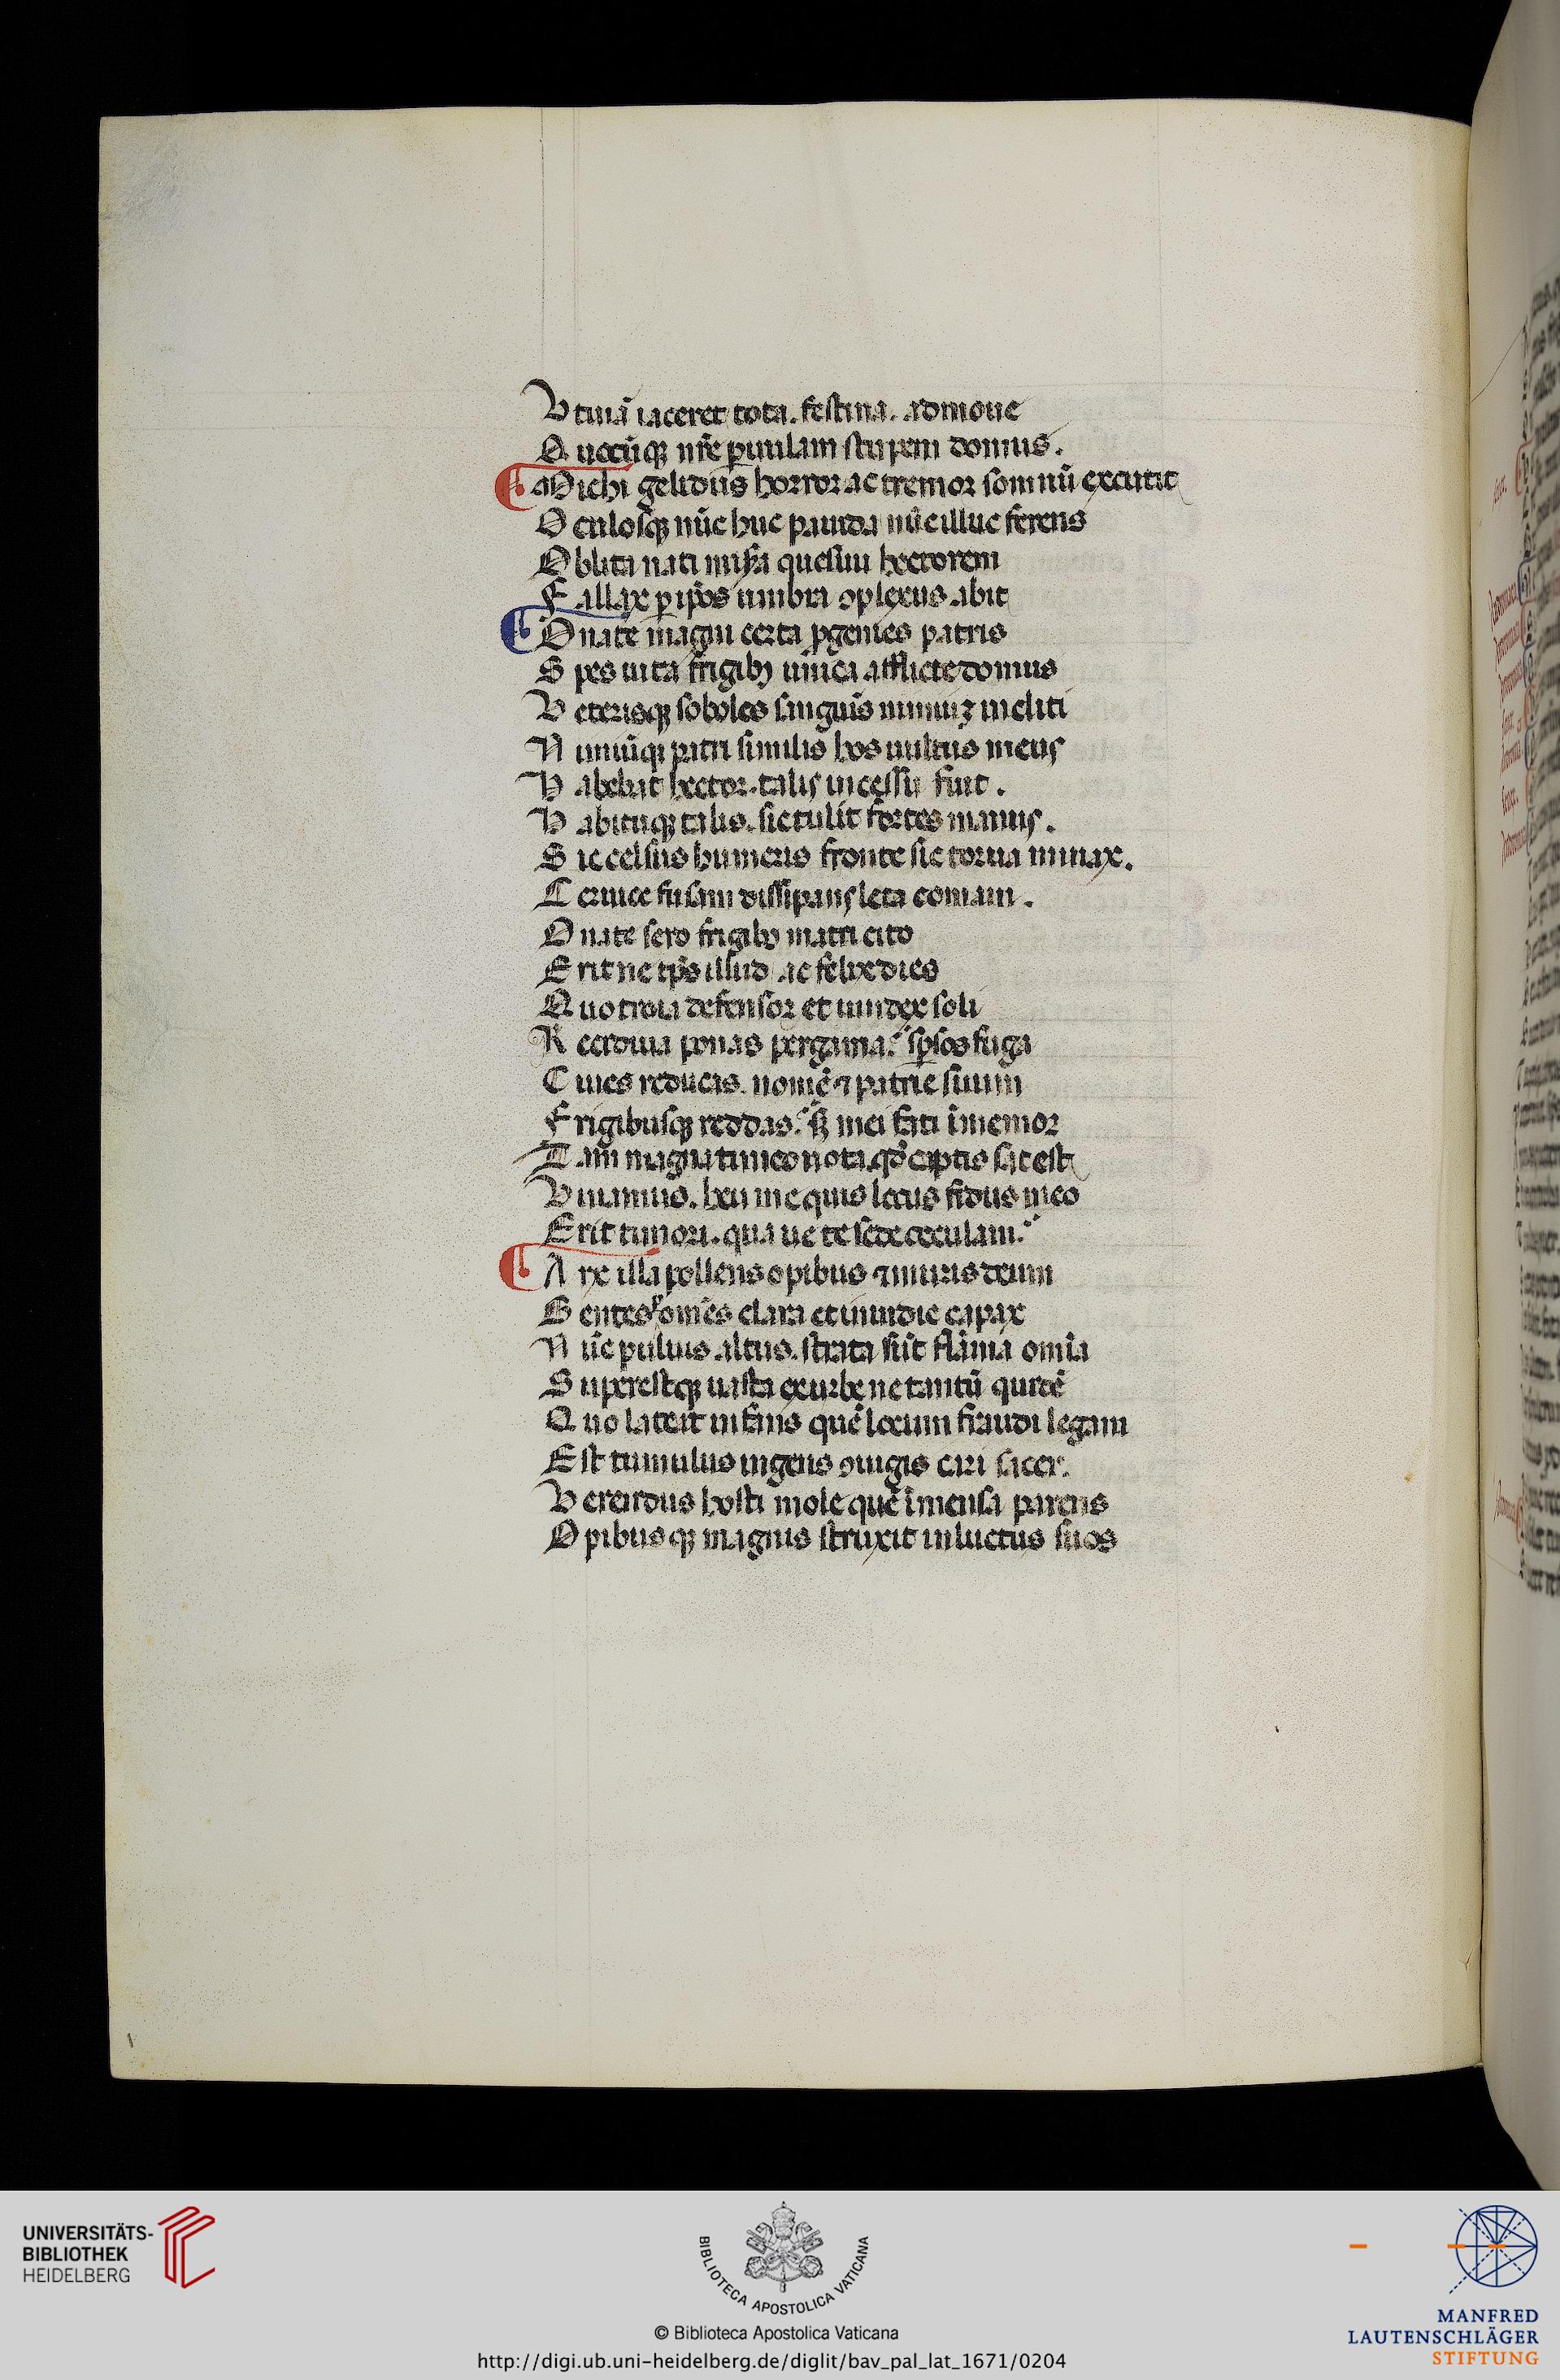 Vtinã iaceret tota. festina. admoue
Quocũqꝫ nr̃e ꝑuulam stirpem domus.
Michi gelidus horror ac tremor somnũ excutit
Oculosqꝫ nũc huc pauida nũc illuc ferens
Oblita nati miẜa quesiui hectorem
Fallax ꝑ ip̃os umbra ꝯplexus abit
O nate magni certa ꝓgenies patris
Spes una frigibꝫ unica afflicte domus
Veterisqꝫ soboles sanguis nimiuꝫ incliti
Nimiũqꝫ patri similis hos uultus meus
Habebat hector. talis incessu fuit.
Habituqꝫ talis. sic tulit fortes manus.
Sic celsus humeris fronte sic torua minax.
Ceruice fusam dissipans leta comam.
O nate sero frigibꝫ matri cito
Erit ne tp̃s illud ac felix dies
Quo troia defensor et uindex soli
Recidiua ponas pergama. sp̃sos fuga
Ciues reducas. nomẽ ⁊ patrie suum
Frigibusqꝫ reddas. sꝫ mei fati ĩmemor
Tam magna timeo uota. qd̃ captis sat est
Viuamus. heu me quis locus fidus meo
Erit timori. qua ue te sede occulam.
Arx illa pollens opibus ⁊ muris deum
Gentes omẽs clara et inuidie capax
Nũc puluis altus. strata sũt flãma omĩa
Superestqꝫ uasta ex urbe ne tantũ quidẽ
Quo lateat infans quẽ locum fraudi legam
Est tumulus ingens ꝯiugis cari sacer.
Verendus hosti mole quẽ ĩmensa parens
Opibusqꝫ magnis struxit in luctus suos
UNIVERSITÄTS-
BIBLIOTHEK
HEIDELBERG
BIBLIOTECA APOSTOLICA VATICANA
© Biblioteca Apostolica Vaticana
http://digi.ub.uni-heidelberg.de/diglit/bav_pal_lat_1671/0204
MANFRED
LAUTENSCHLÄGER
STIFTUNG